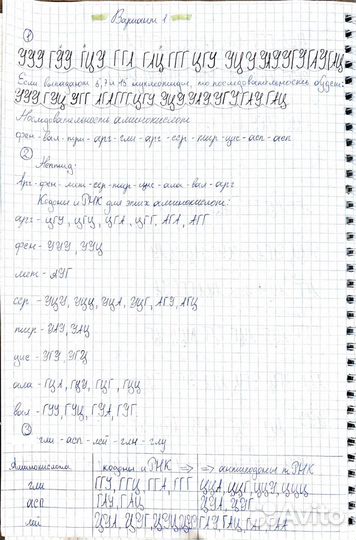 Вариант 1
1
УУУ ГУУ ГЦУ ГГА ГАЦ ГГГ ЦГУ УЦУ УАУ УГУ ГАУ ГАЦ
Если выпадают 5, 7 и 15 нуклеотиды, то последовательность будет:
Последовательность аминокислот:
фен - вал - арг - гли - арг - сер - тир - цис - асп - асп
2
Пептид:
Арг - фен - сер - тир - цис - ала - вал - арг
Кодоны иРНК для этих аминокислот:
арг - ЦГУ, ЦГЦ, ЦГА, ЦГГ, АГА, АГГ
фен - УУУ, УУЦ
мет - АУГ
сер - УЦУ, УЦЦ, УЦА, УЦГ, АГУ, АГЦ
тир - УАУ, УАЦ
цис - УГУ, УГЦ
ала - ГЦА, ГЦУ, ГЦГ, ГЦЦ
вал - ГУУ, ГУЦ, ГУА, ГУГ.
3
гли - асп - лей - глн - глу
Аминокислота кодоны иРНК → → антикодоны тРНК
гли ГГУ, ГГЦ, ГГА, ГГГ ЦЦА, ЦЦГ, ЦЦУ, ЦЦЦ
асп ГАУ, ГАЦ ЦУА, ЦУГ
лей ЦУА, ЦУГ, ЦУЦ, ЦУУ ГАУ, ГАЦ, ГАГ, ГАА
Avito